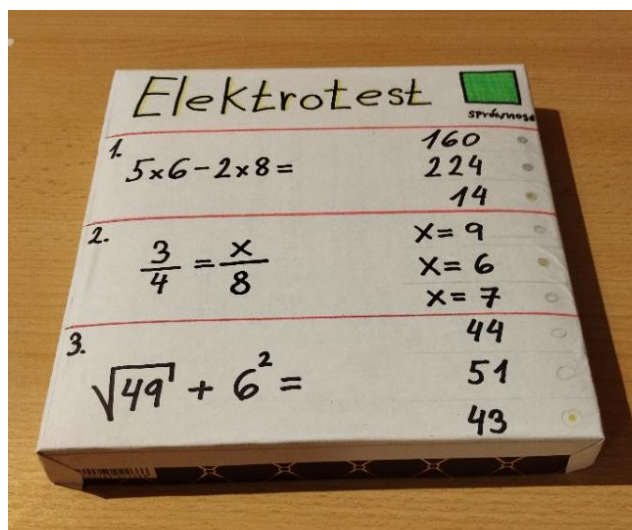 Elektrotest
správnost
1.
5×6-2×8=
160
224
14
2.
3/4 = x/8
x= 9
x= 6
x= 7
3.
√49 + 6² =
44
51
43